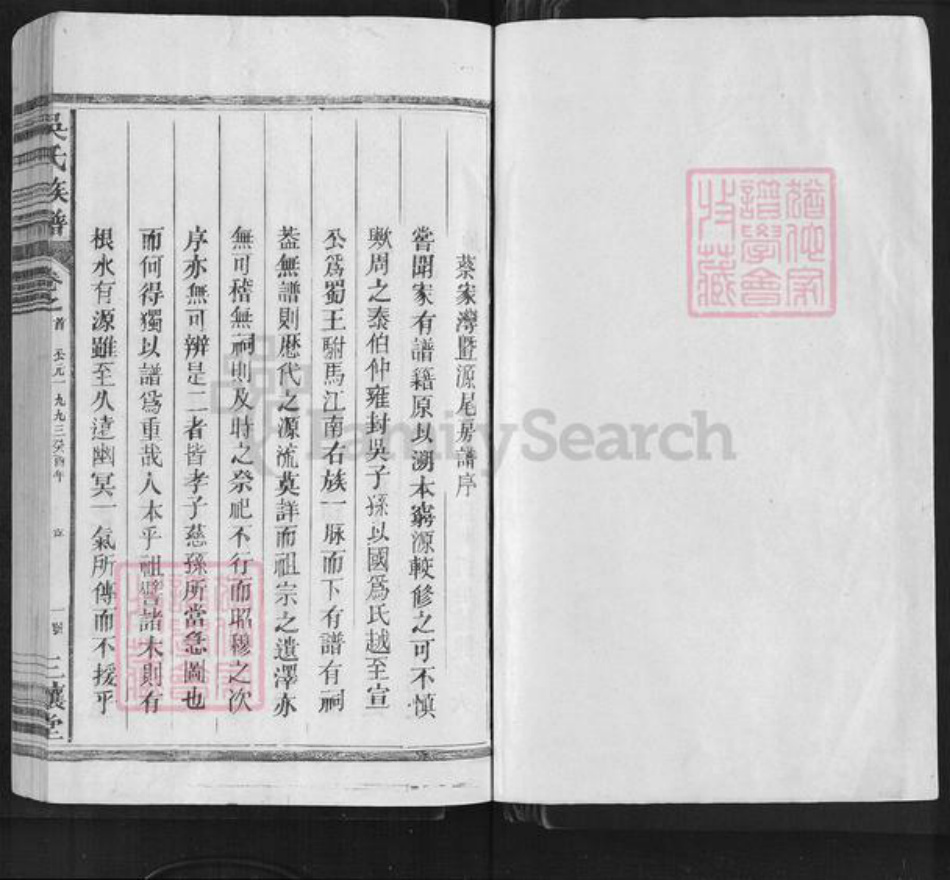 蔡家灣暨源尾房譜序
嘗聞家有譜籍原以溯本窮源較修之可不慎
歟周之泰伯仲雍封吳子孫以國爲氏越至宣
公爲蜀王駙馬江南右族一脉而下有譜有祠
蓋無譜則歷代之源流莫詳而祖宗之遺澤亦
無可稽無祠則及時之祭祀不行而昭穆之次
序亦無可辨是二者皆孝子慈孫所當急圖也
而何得獨以譜爲重哉人本乎祖譬諸木則有
根水有源雖至久遠幽冥一氣所傳而不援乎
吳氏族譜
卷之首
公元一九九三癸酉年
三讓堂
譜學會
FamilySearch